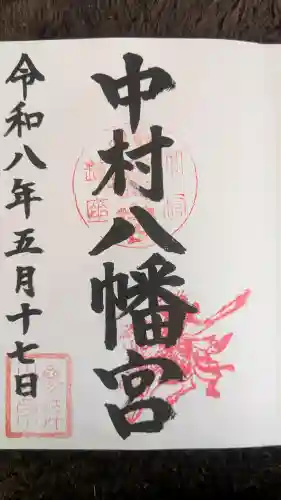 中村八幡宮
令和八年五月十七日